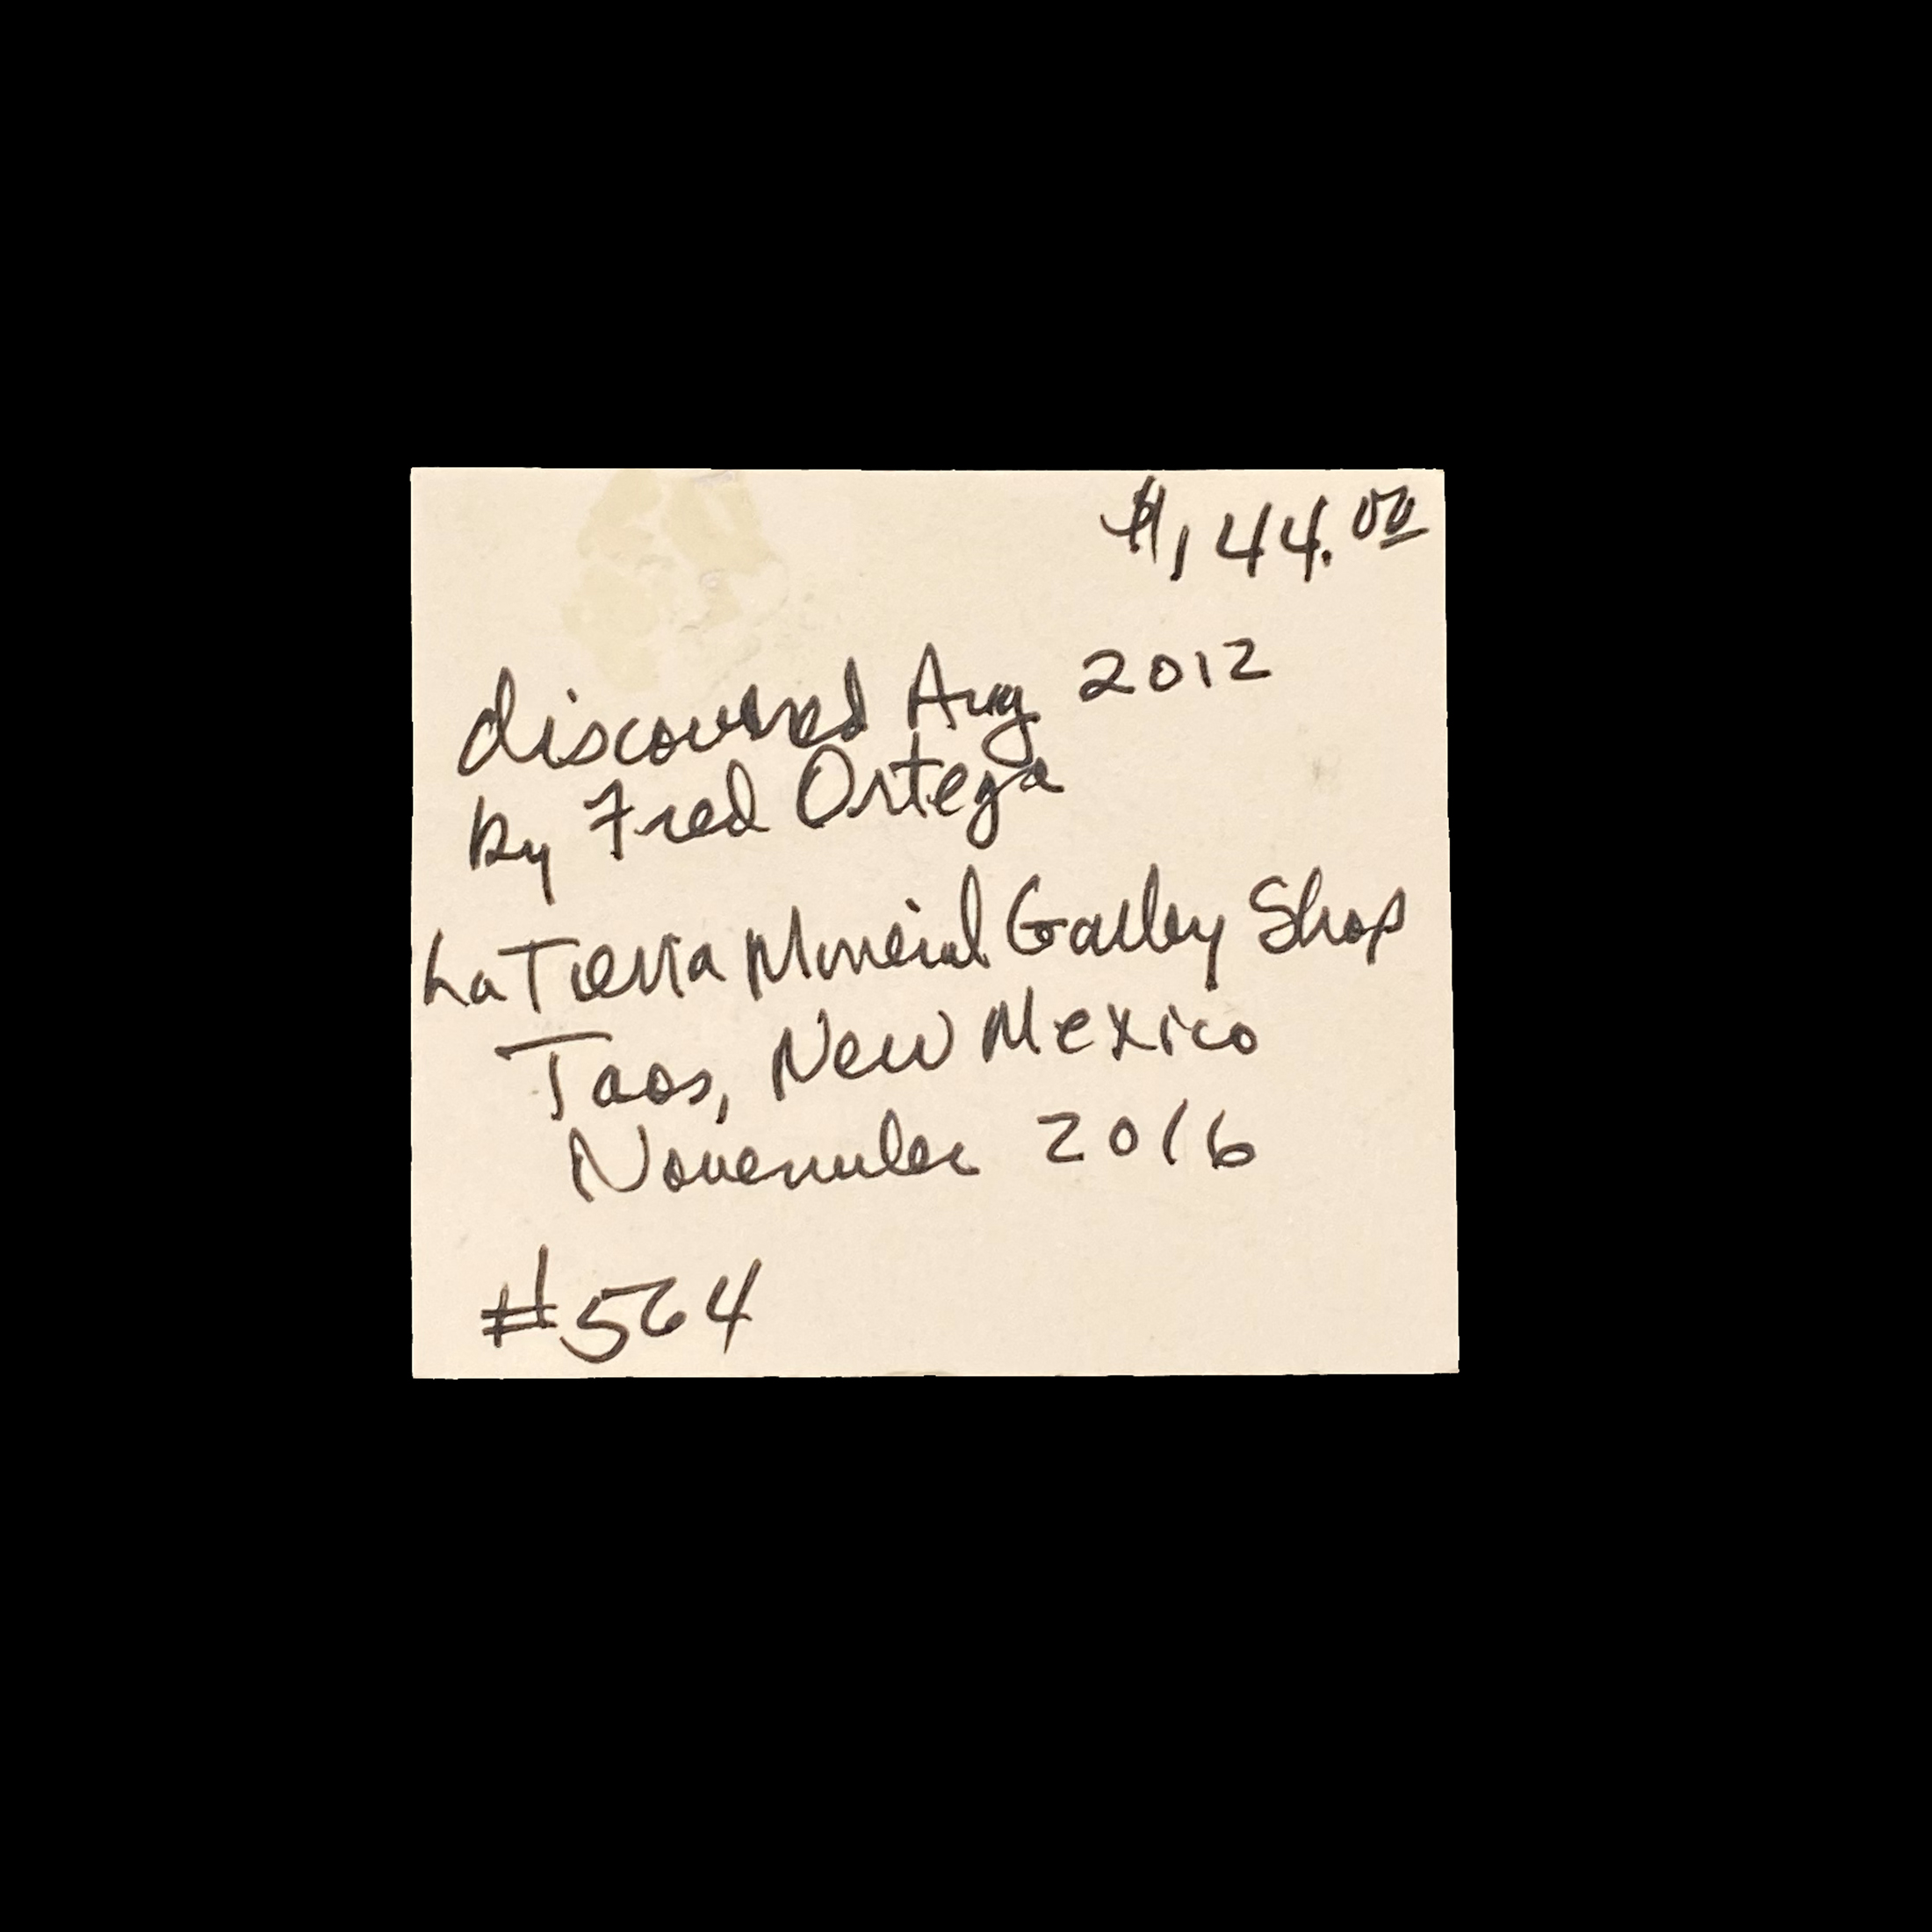 $144.00
discovered Aug 2012
by Fred Ortega
La Tierra Mineral Galley Shop
Taos, New Mexico
November 2016
#564